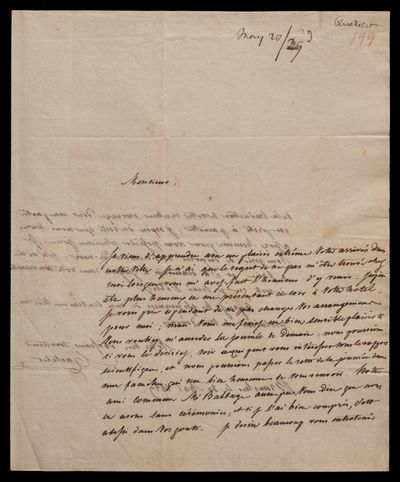 Quetelet
May 20/29 29
199
Monsieur,
Je viens d'apprendre avec un plaisir extrême votre arrivée dans
notre ville et j'ai le regret de ne pas m'être trouvé chez
moi lorsque vous m'avez fait l'honneur d'y venir. J'espère
être plus heureux en me présentant ce soir à votre hôtel
je vous prie cependant de ne pas changer vos arrangemens
pour moi; mais vous me feriez un bien sensible plaisir si
vous vouliez m'accorder la journée de demain. nous pourrions
si vous le désiriez, voir ce qui peut vous intéresser sous le rapport
scientifique, et nous pourrions passer le reste de la journée dans
ma famille qui sera bien heureuse de vous recevoir. Notre
ami commun Mr Babbage aura pu vous dire que nous
en usons sans cérémonies, et si je l'ai bien compris, c'est
aussi dans vos goûts. je désire beaucoup vous entretenir